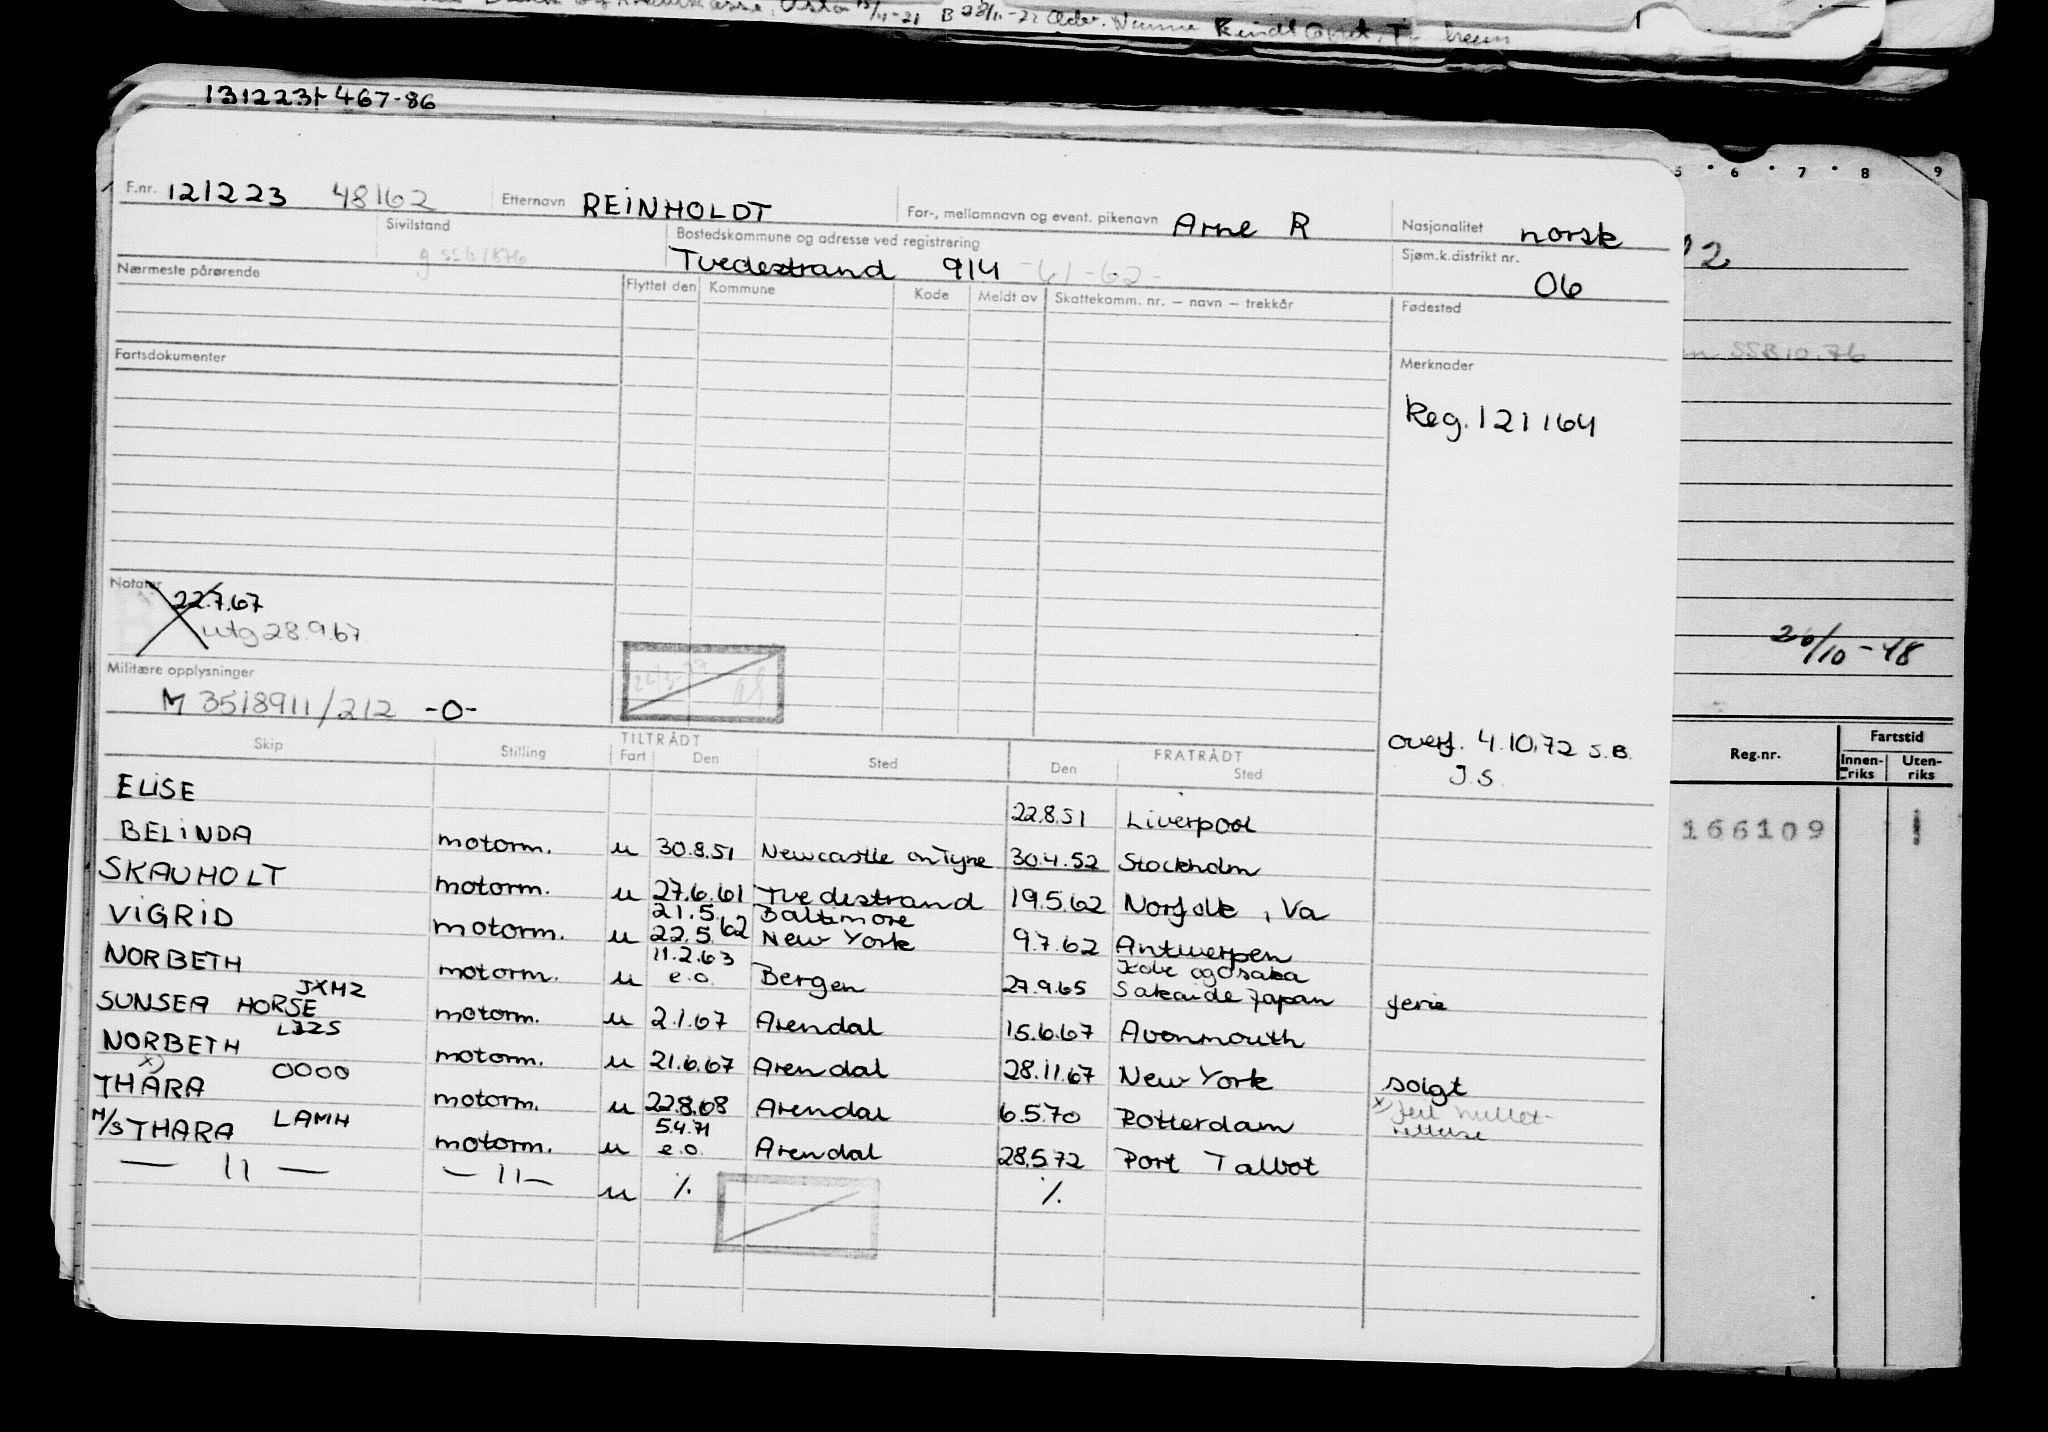 B 23/11-22
131223 467-86
F.nr. 121223 48162 Etternavn REINHOLDT For-, mellomnavn og event. pikenavn Arne R Nasjonalitet norsk
Sivilstand Bostedskommune og adresse ved registrering Tvedestrand 914 -61-62- Sjøm.k.distrikt nr. 06
Nærmeste pårørende Flyttet den Kommune Kode Meldt av Skattekomm. nr. – navn – trekkår Fødested
Fartsdokumenter Merknader
Reg. 121164
Notater 22.7.67
utg 28.9.67
Militære opplysninger
M 3518911/212 -0-
overf. 4.10.72 S.B.
J.S.
TILTRÅDT FRATRÅDT
Skip Stilling Fart Den Sted Den Sted
ELISE 22.8.51 Liverpool
BELINDA motorm. u 30.8.51 Newcastle on Tyne 30.4.52 Stockholm
SKAUHOLT motorm. u 27.6.61 Tvedestrand 19.5.62 Norfolk, Va
21.5. Baltimore
VIGRID motorm. u 22.5.62 New York 9.7.62 Antwerpen
11.2.63 Kobe og Osaka
NORBETH motorm. u e.o. Bergen 27.9.65 Japan ferie
JXMZ
SUNSEA HORSE motorm. u 2.1.67 Arendal 15.6.67 Avonmouth
NORBETH motorm. u 21.6.67 Arendal 28.11.67 New York solgt
x) OOOO
THARA motorm. u 22.8.68 Arendal 6.5.70 Rotterdam x) feil
LAMH 5.4.71
M/S THARA motorm. u e.o. Arendal 28.5.72 Port Talbot
— 11 — — 11 — u ٪ ٪
5 6 7 8 9
02
SSB 10.76
26/10-48
Reg.nr. Fartstid
Innen-riks Uten-riks
166109 1